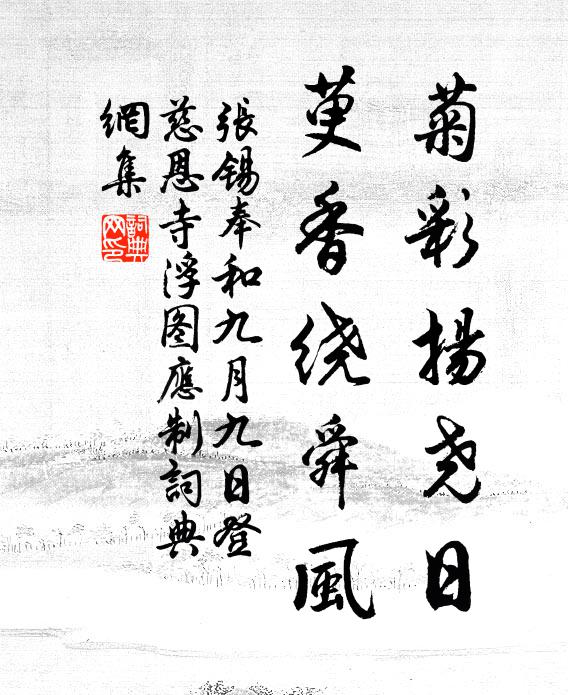 菊彩揚尧日
萸香绕舜風
張锡奉和九月九日登
慈恩寺浮图應制詞典
網集
詞典網印